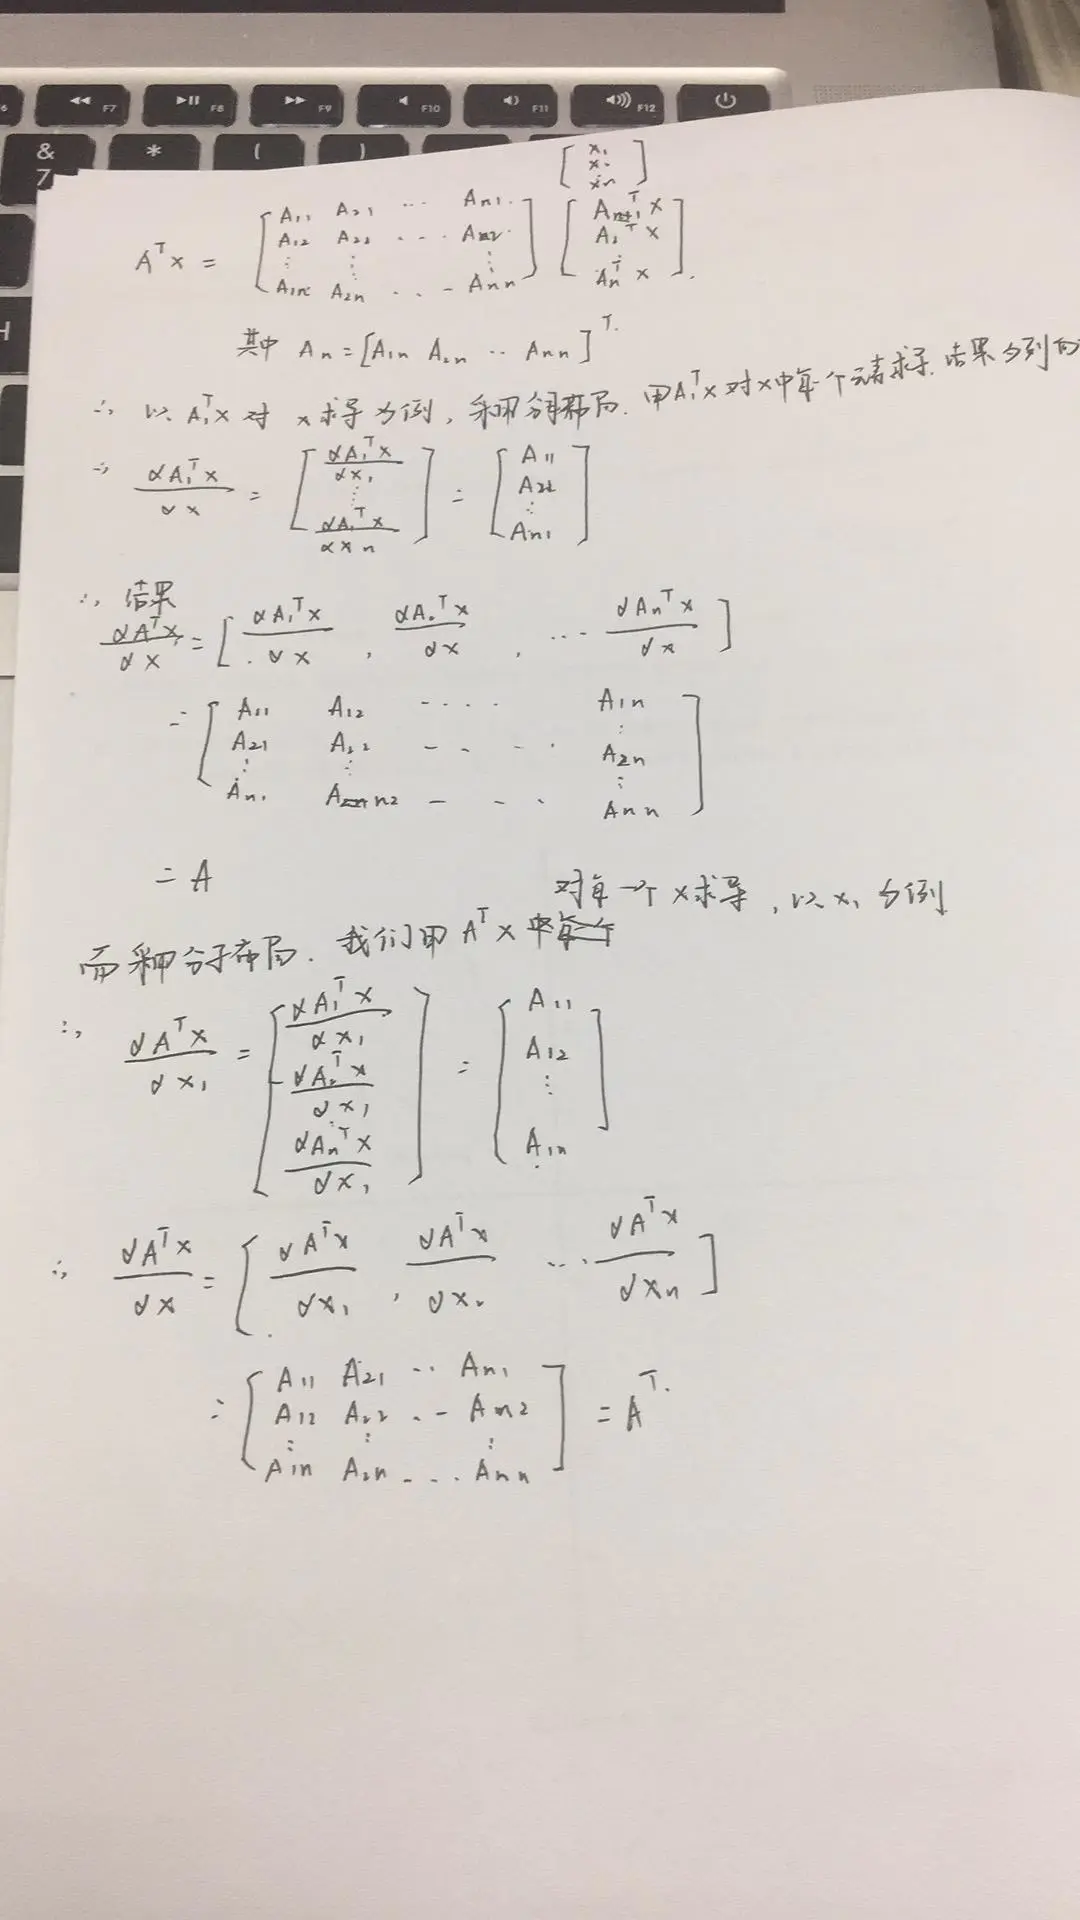 F7 F8 F9 F10 F11 F12
& * ( )
7
H
[x₁ x₂ xn]
AᵀX = [A₁₁ A₂₁ ... An₁; A₁₂ A₂₂ ... An₂; ⋮ ⋮ ⋮; A₁n A₂n ... Ann] [A₁ᵀx; A₂ᵀx; ⋮ Anᵀx].
其中 An = [A₁n A₂n ... Ann]ᵀ.
∴ 以 A₁ᵀx 对 x 求导为例,采用分母布局.用A₁ᵀx对x中每个元素求导.结果为列向
∴ dA₁ᵀx/dx = [dA₁ᵀx/dx₁; ⋮; dA₁ᵀx/dxn] = [A₁₁; A₂₂; ⋮; An₁]
∴ 结果
dAᵀx/dx = [dA₁ᵀx/dx, dA₂ᵀx/dx, ... dAnᵀx/dx]
= [A₁₁ A₁₂ .... A₁n; A₂₁ A₂₂ .... A₂n; ⋮ ⋮ ⋮; An₁ An₂ .... Ann]
= A
对每一个x求导,以x₁为例
而采用分子布局.我们用AᵀX中每个
∴ dAᵀx/dx₁ = [dA₁ᵀx/dx₁; dA₂ᵀx/dx₁; ⋮ dAnᵀx/dx₁] = [A₁₁; A₁₂; ⋮; A₁n]
∴ dAᵀx/dx = [dAᵀx/dx₁, dAᵀx/dx₂ ... dAᵀx/dxn]
= [A₁₁ A₂₁ ... An₁; A₁₂ A₂₂ ... An₂; ⋮ ⋮ ⋮; A₁n A₂n ... Ann] = Aᵀ.